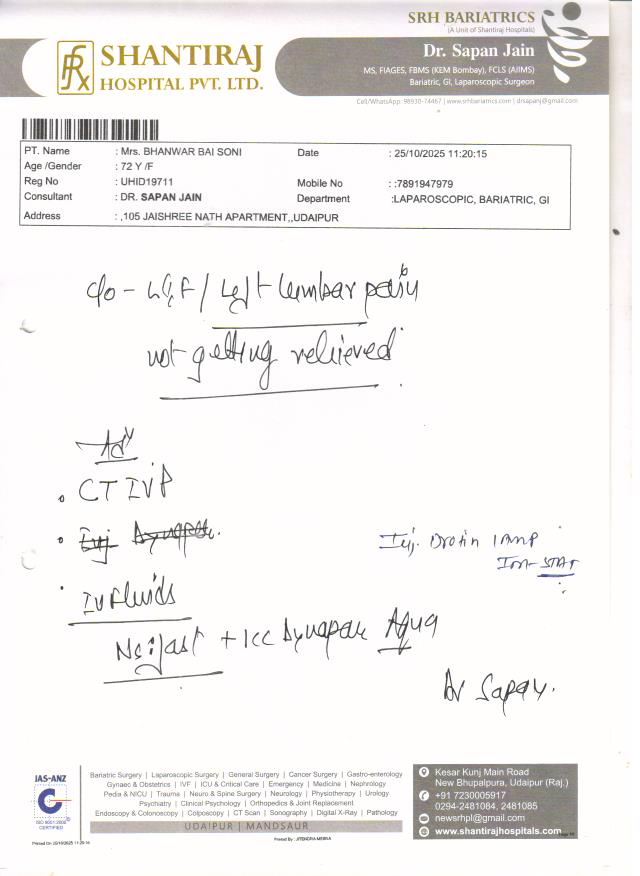 SRH BARIATRICS
(A Unit of Shantiraj Hospitals)
SHANTIRAJ
HOSPITAL PVT. LTD.
Dr. Sapan Jain
MS, FIAGES, FBMS (KEM Bombay), FCLS (AIIMS)
Bariatric, GI, Laparoscopic Surgeon
Cell/WhatsApp: 98930-74467 | www.srhbariatrics.com | drsapanj@gmail.com
PT. Name : Mrs. BHANWAR BAI SONI Date : 25/10/2025 11:20:15
Age /Gender : 72 Y /F
Reg No : UHID19711 Mobile No : :7891947979
Consultant : DR. SAPAN JAIN Department :LAPAROSCOPIC, BARIATRIC, GI
Address : ,105 JAISHREE NATH APARTMENT,,UDAIPUR
c/o - / Left lumbar pain
not getting relieved
Adv
CT IVP
Inj
Inj. Drotin 1 AMP
IM - STAT
IV Fluids
NS: fast + 1cc Dynapar Aqua
Dr Sapan.
JAS-ANZ
ISO 9001:2008
CERTIFIED
Bariatric Surgery | Laparoscopic Surgery | General Surgery | Cancer Surgery | Gastro-enterology
Gynaec & Obstetrics | IVF | ICU & Critical Care | Emergency | Medicine | Nephrology
Pedia & NICU | Trauma | Neuro & Spine Surgery | Neurology | Physiotherapy | Urology
Psychiatry | Clinical Psychology | Orthopedics & Joint Replacement
Endoscopy & Colonoscopy | Colposcopy | CT Scan | Sonography | Digital X-Ray | Pathology
UDAIPUR | MANDSAUR
Kesar Kunj Main Road
New Bhupalpura, Udaipur (Raj.)
+91 7230005917
0294-2481084, 2481085
newsrhpl@gmail.com
www.shantirajhospitals.com
Printed By : JITENDRA MEENA